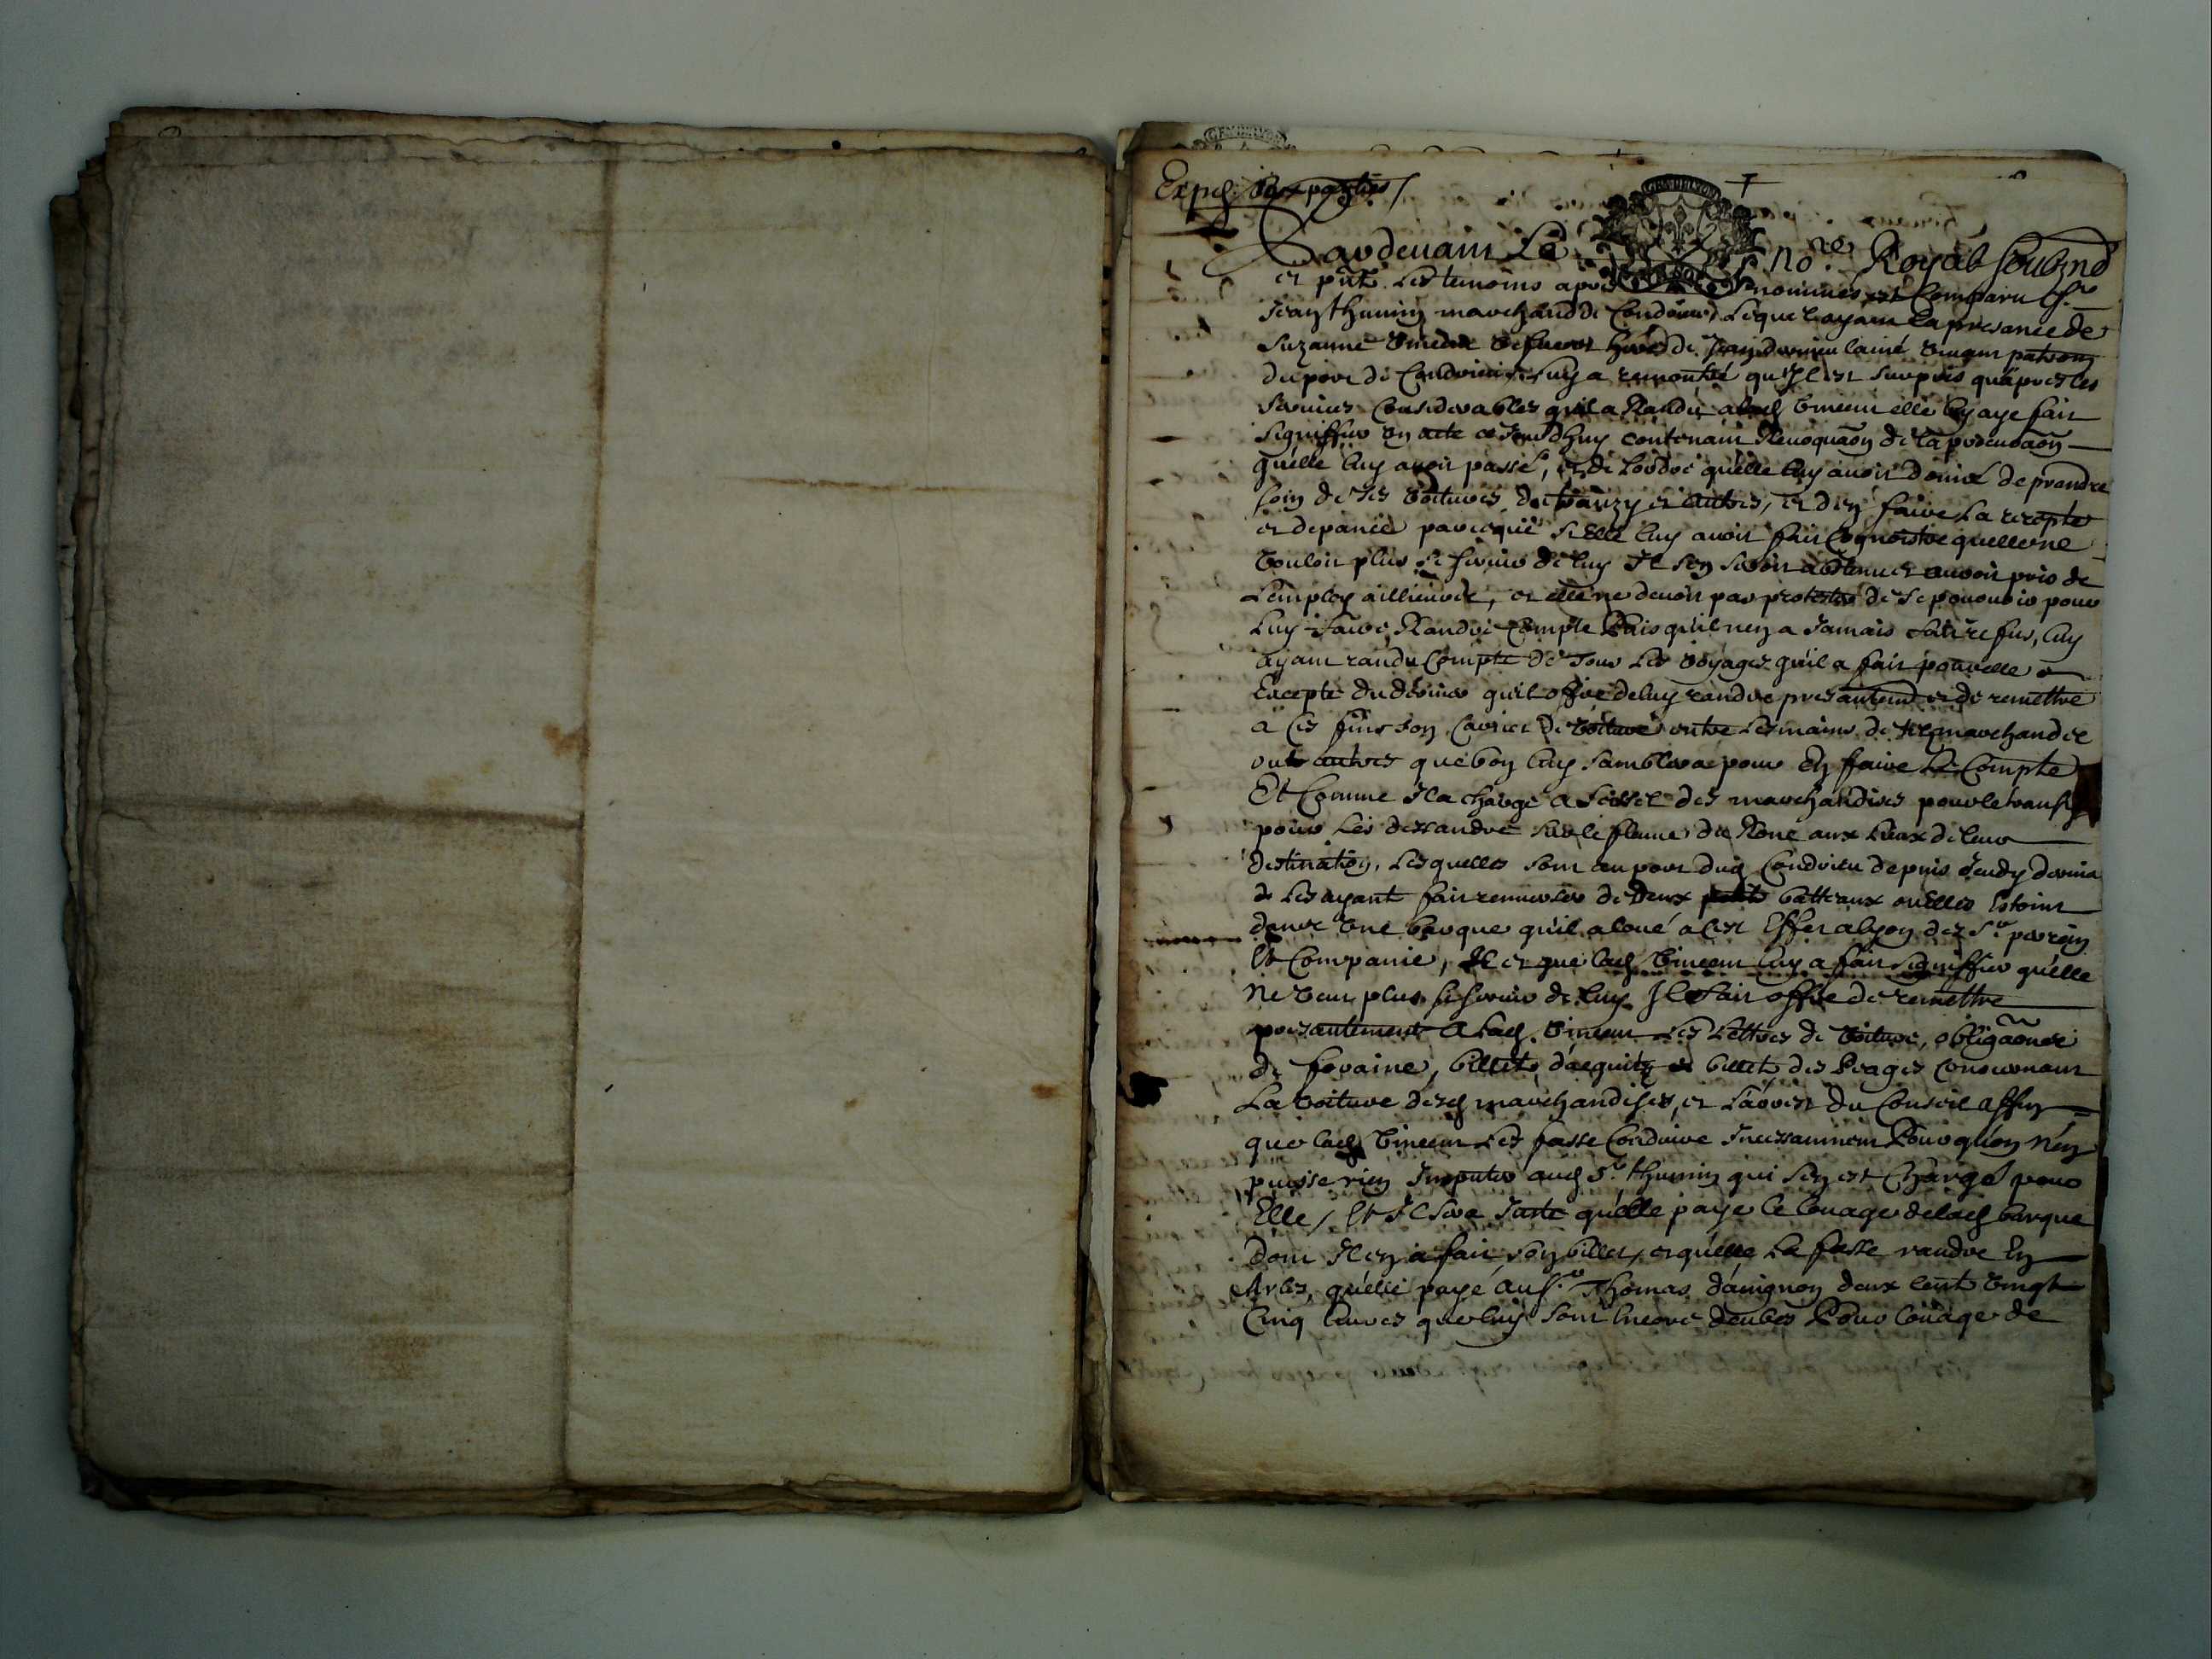 Exped. aux parties /
GENERALITE
Pardevant Le no.re Royal soubzné
et pnt. Les temoins apres nommés est Comparu Sr.
Jean thumin marchand de Condrieu, Lequel ayant la presance de
Suzanne Vincent de Jean laine Vivant patron
du port de Condrieu, Luy a remontré qu'Il est surpris qu'apres les
services Considerables qu'il a Randu a lad. Vincent elle luy aye fait
signiffier un acte ce Jourdhuy contenant Revoquaon de la procuraon
qu'elle luy avoit passé, et de l'ordre qu'elle luy avoit donné de prendre
soin de ses voitures de et autres, et d'en faire La recepte
et depance parceque si Elle luy avoit fait Cognoistre quelle ne
vouloir plus se servir de luy Il s'en seroit abstenu et auroit pris de
L'employ aillieurs, et elle ne devoit pas protester de se pourvoir pour
Luy faire Randre Compte Puis qu'il nen a Jamais fait refus, luy
ayant randu Compte de Tous Les voyages qu'il a fait pour elle
Excepté du dernier qu'il offre de luy randre presantemt et de remettre
a ces fins son Carnet de voiture entre Les mains de marchandz
ou autres que bon luy semblera pour En faire Le Compte
Et Comme Il a chargé a Seissel des marchandises pour
pour Les dessandre sur le fleuve du Rone aux Lieux de leur
destination, Lesquelles sont au port dud. Condrieu depuis Jeudy dernier
Les ayant fait remuer de Deux petits batteaux ou Elles Estoint
dans une barque qu'il a loué a cest Effet a Lyon des Srs perrin
Et Companie, Et que lad. Vincent luy a fait signiffier qu'elle
ne veut plus se servir de luy Il fait offre de remettre
presantement a Lad. Vincent Les Lettres de voiture, obligaons
de foraine, billets d'acquitz et billets des Peages Concernant
La voiture desd. marchandises, et L'arrest du Conseil affin
que lad. Vincent Les fasse Conduire Incessamment Pour qu'on n'en
puisse rien Imputer aud. Sr. thumin qui s'en est Chargé pour
Elle, Et Il sera Juste qu'elle paye le louage de lad. barque
dont Il en a fait son billet, et qu'elle La fasse randre En
Arles, qu'elle paye au Sr. Thomas d'avignon deux cent vingt
Cinq livres que luy sont Encore deubes Pour louage de